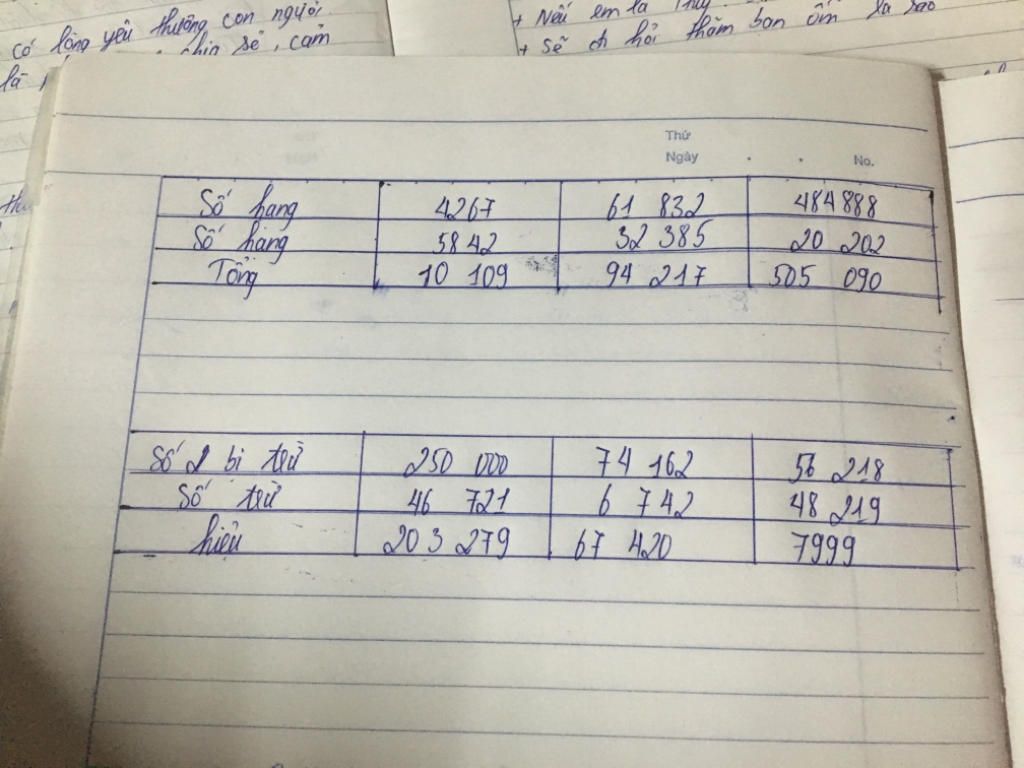 có lòng yêu thương con người
sẻ, cảm
là
+ Nếu em là
+ Sẽ hỏi thăm bạn ốm là sao
Thứ
Ngày
No.
Số hạng 4267 61 832 484 888
Số hạng 5842 32 385 20 202
Tổng 10 109 94 217 505 090
Số bị trừ 250 000 74 162 56 218
Số trừ 46 721 6 742 48 219
hiệu 203 279 67 420 7999